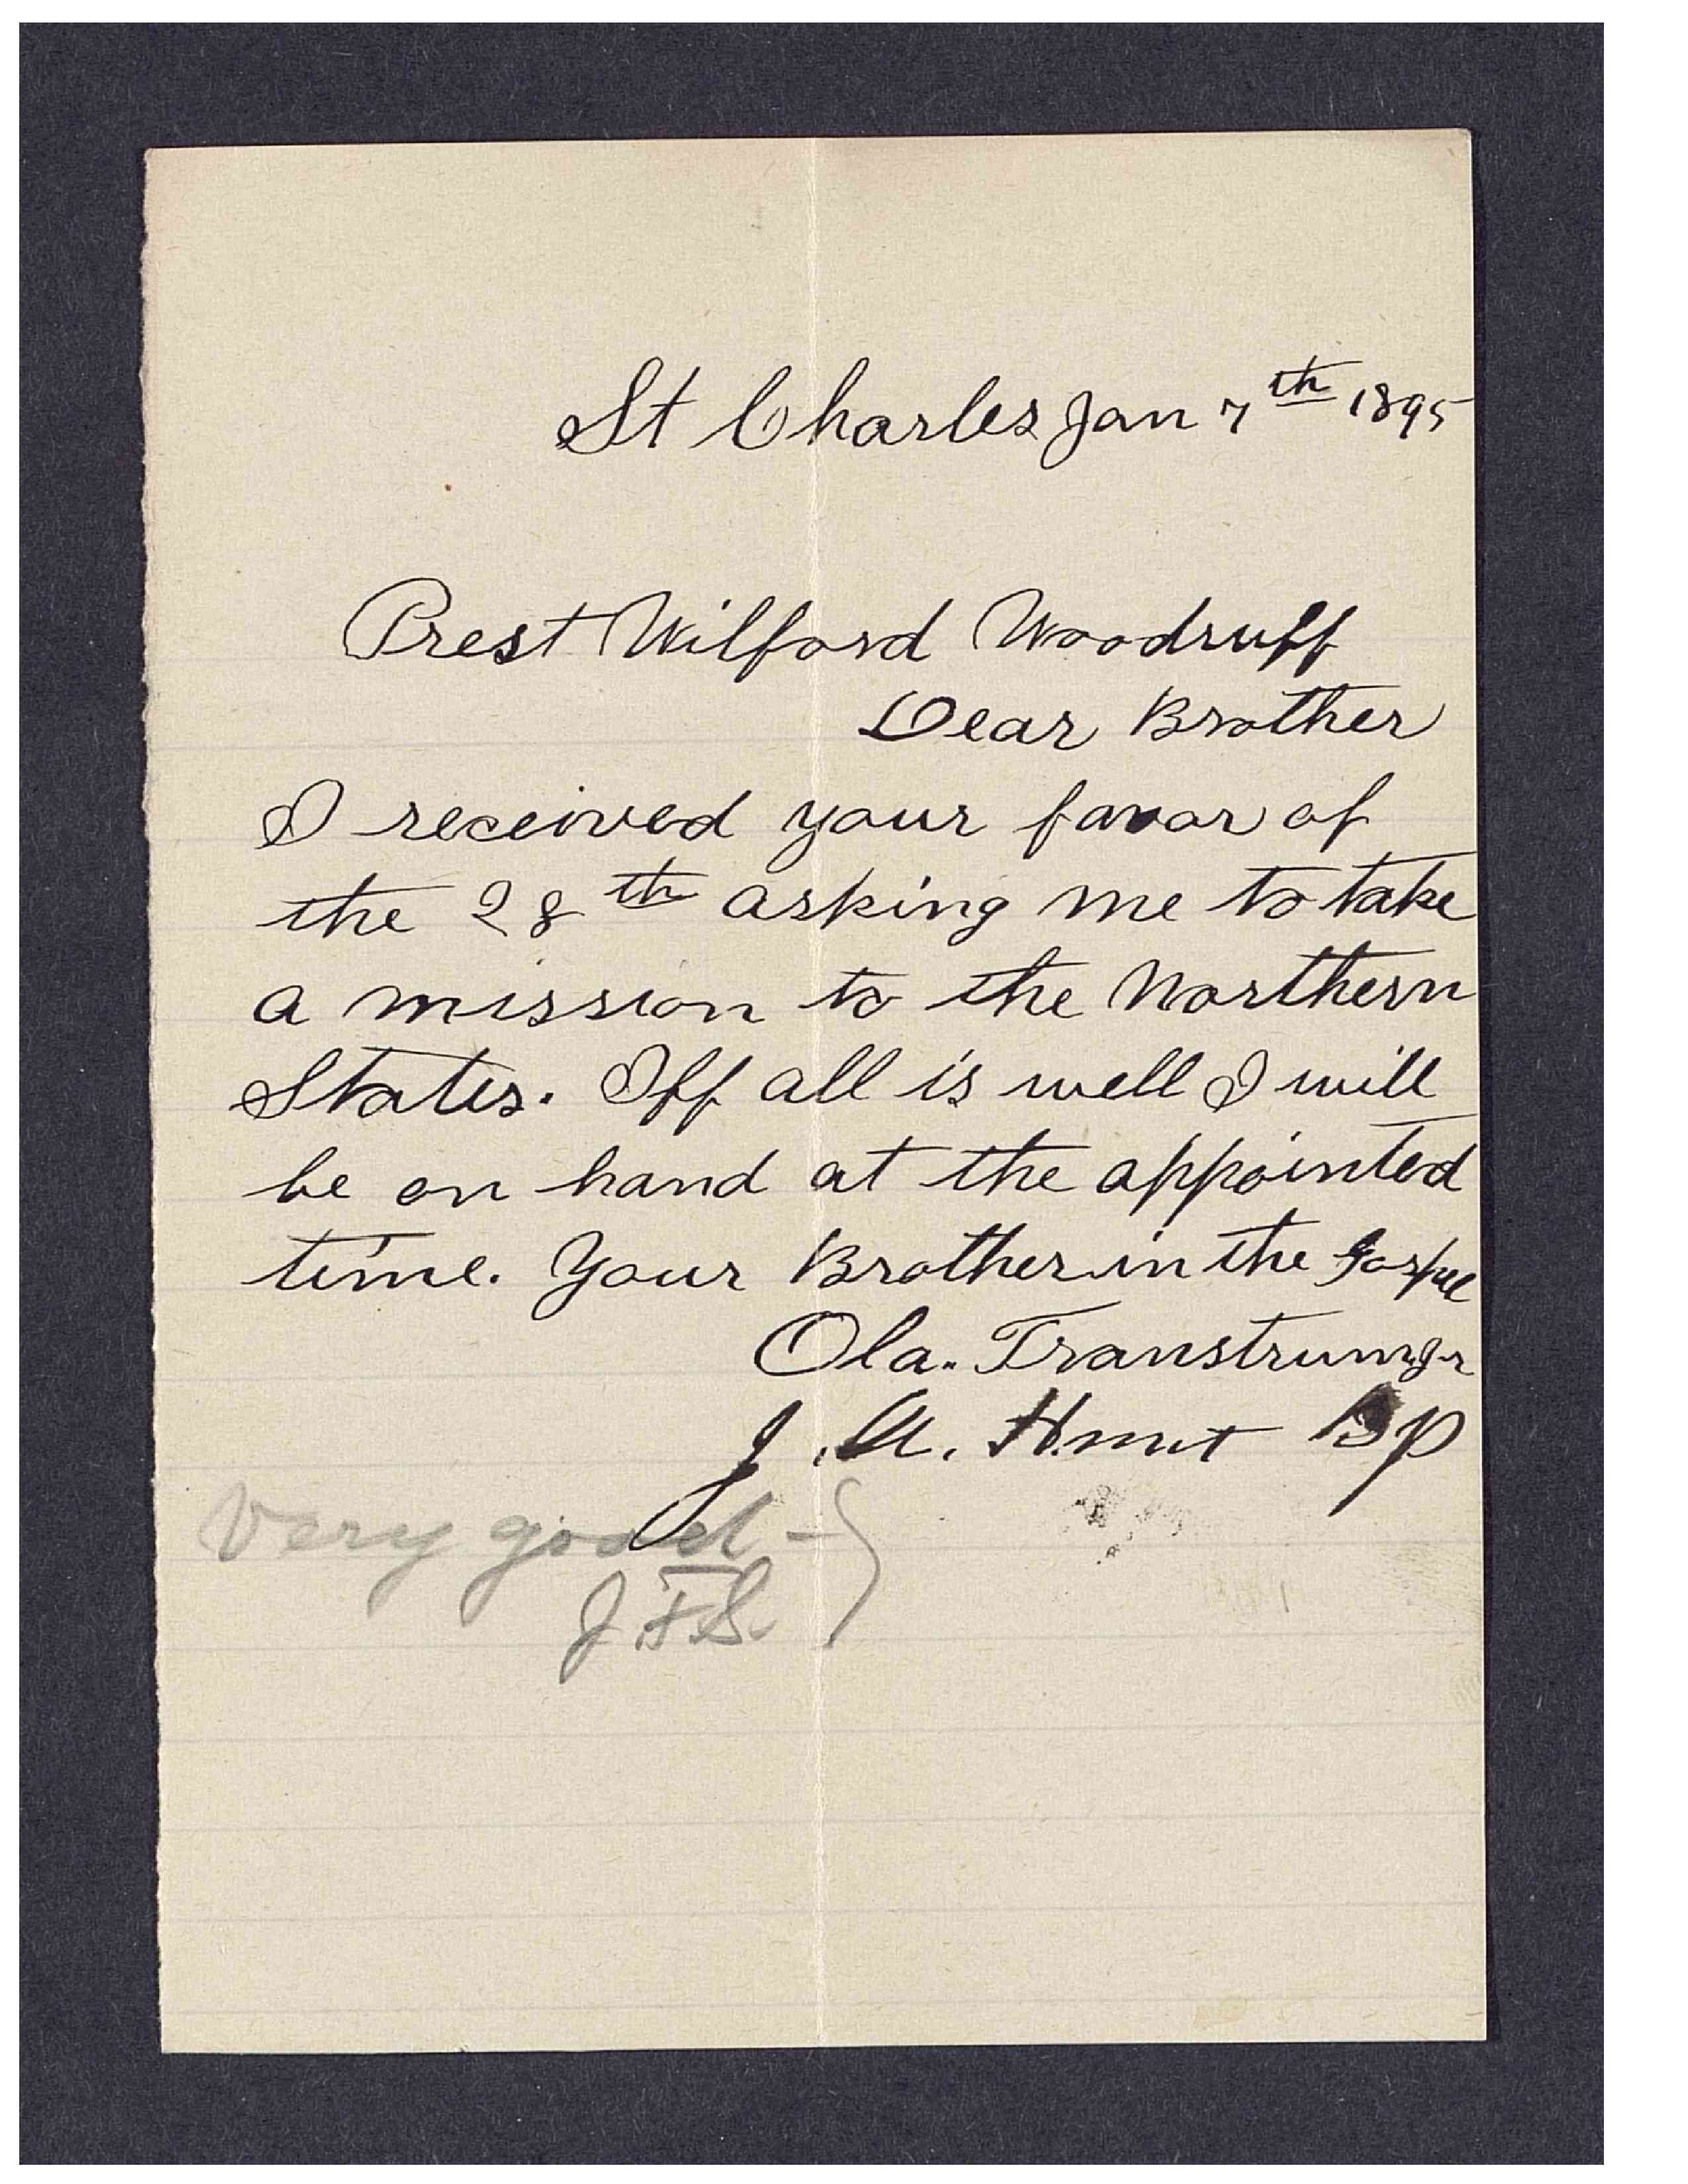 St Charles Jan 7th 1895
Prest Wilford Woodruff
Dear Brother
I received your favor of
the 28th asking me to take
a mission to the Northern
States. Iff all is well I will
be on hand at the appointed
time. Your Brother in the gospel
Ola. Transtrum Jr
J. A. Hunt Bp
Very good -
J. F. S.